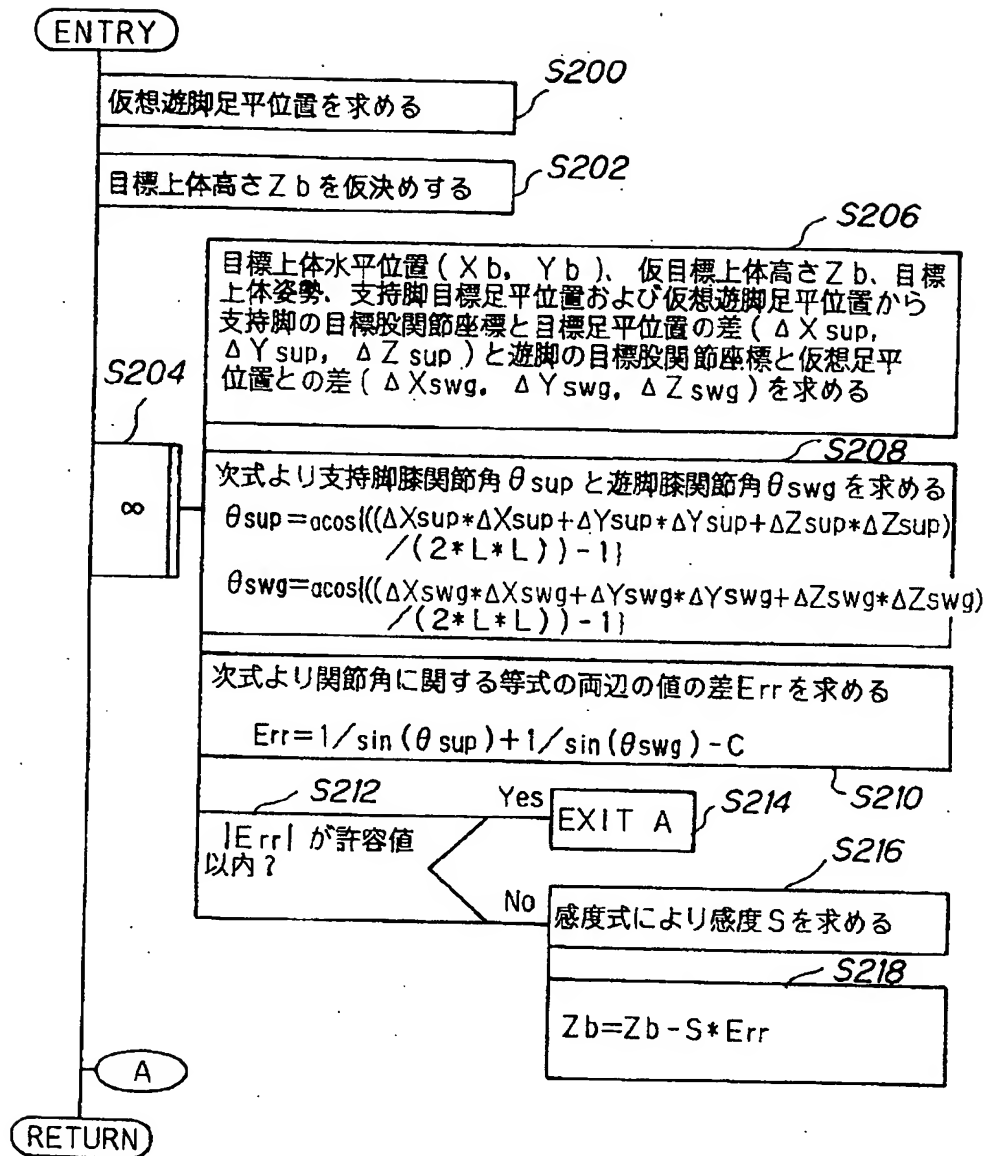 ENTRY
S200
仮想遊脚足平位置を求める
S202
目標上体高さZbを仮決めする
S204
∞
S206
目標上体水平位置(Xb, Yb)、仮目標上体高さZb、目標
上体姿勢、支持脚目標足平位置および仮想遊脚足平位置から
支持脚の目標股関節座標と目標足平位置の差(ΔXsup,
ΔYsup, ΔZsup)と遊脚の目標股関節座標と仮想足平
位置との差(ΔXswg, ΔYswg, ΔZswg)を求める
S208
次式より支持脚膝関節角θsupと遊脚膝関節角θswgを求める
θsup=acos{((ΔXsup*ΔXsup+ΔYsup*ΔYsup+ΔZsup*ΔZsup)
/(2*L*L))-1}
θswg=acos{((ΔXswg*ΔXswg+ΔYswg*ΔYswg+ΔZswg*ΔZswg)
/(2*L*L))-1}
次式より関節角に関する等式の両辺の値の差Errを求める
Err=1/sin(θsup)+1/sin(θswg)-C
S210
S212
|Err|が許容値
以内?
Yes
EXIT A
S214
No
S216
感度式により感度Sを求める
S218
Zb=Zb-S*Err
A
RETURN